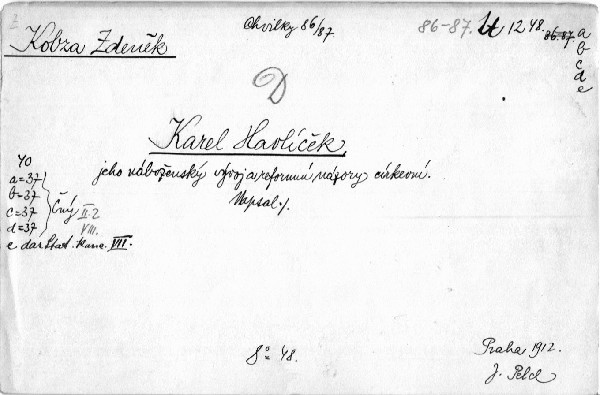 Chvilky 86/87
86-87. 1t 1248.
86.87
a
b
c
d
e
Kobza Zdeněk
D
Karel Havlíček,
jeho náboženský vývoj a reformní názory církevní.
Napsal ./.
40
a=37
b=37
c=37
d=37
Čný II.2
VIII.
e dar Stat. kanc. VII.
8° 48.
Praha 1912.
J. Pelcl